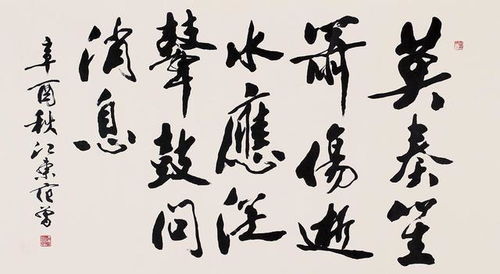 莫奏笙
箫傷逝
水應從
鼙鼓问
消息
辛酉秋江東范曾